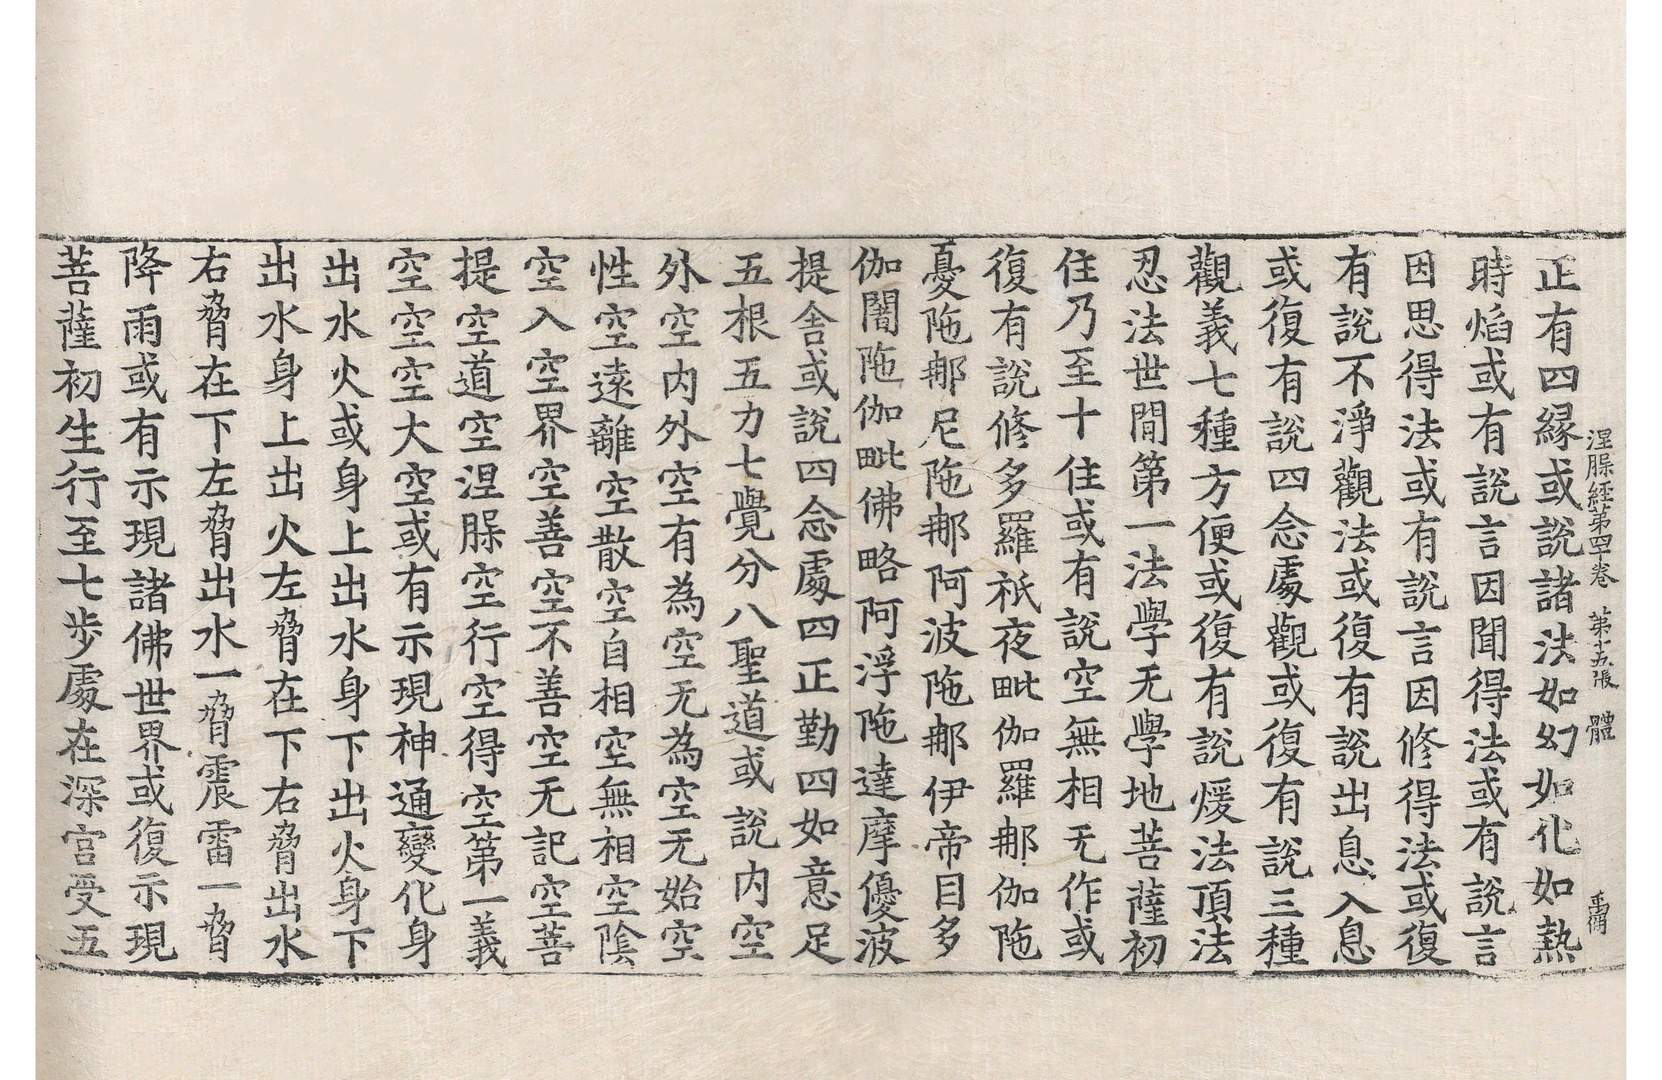 涅脲經第四十卷 第十五張 體
正有四緣或說諸法如幻如化如熱
時焰或有說言因聞得法或有說言
因思得法或有說言因修得法或復
有說不淨觀法或復有說出息入息
或復有說四念處觀或復有說三種
觀義七種方便或復有說煖法頂法
忍法世間第一法學无學地菩薩初
住乃至十住或有說空無相无作或
復有說修多羅祇夜毗伽羅那伽陁
憂陁那尼陁那阿波陁那伊帝目多
伽闍陁伽毗佛略阿浮陁達摩優波
提舍或說四念處四正勤四如意足
五根五力七覺分八聖道或說內空
外空內外空有為空无為空无始空
性空遠離空散空自相空無相空陰
空入空界空善空不善空无記空菩
提空道空涅脲空行空得空第一義
空空空大空或有示現神通變化身
出水火或身上出水身下出火身下
出水身上出火左脅在下右脅出水
右脅在下左脅出水一脅震雷一脅
降雨或有示現諸佛世界或復示現
菩薩初生行至七步處在深宮受五